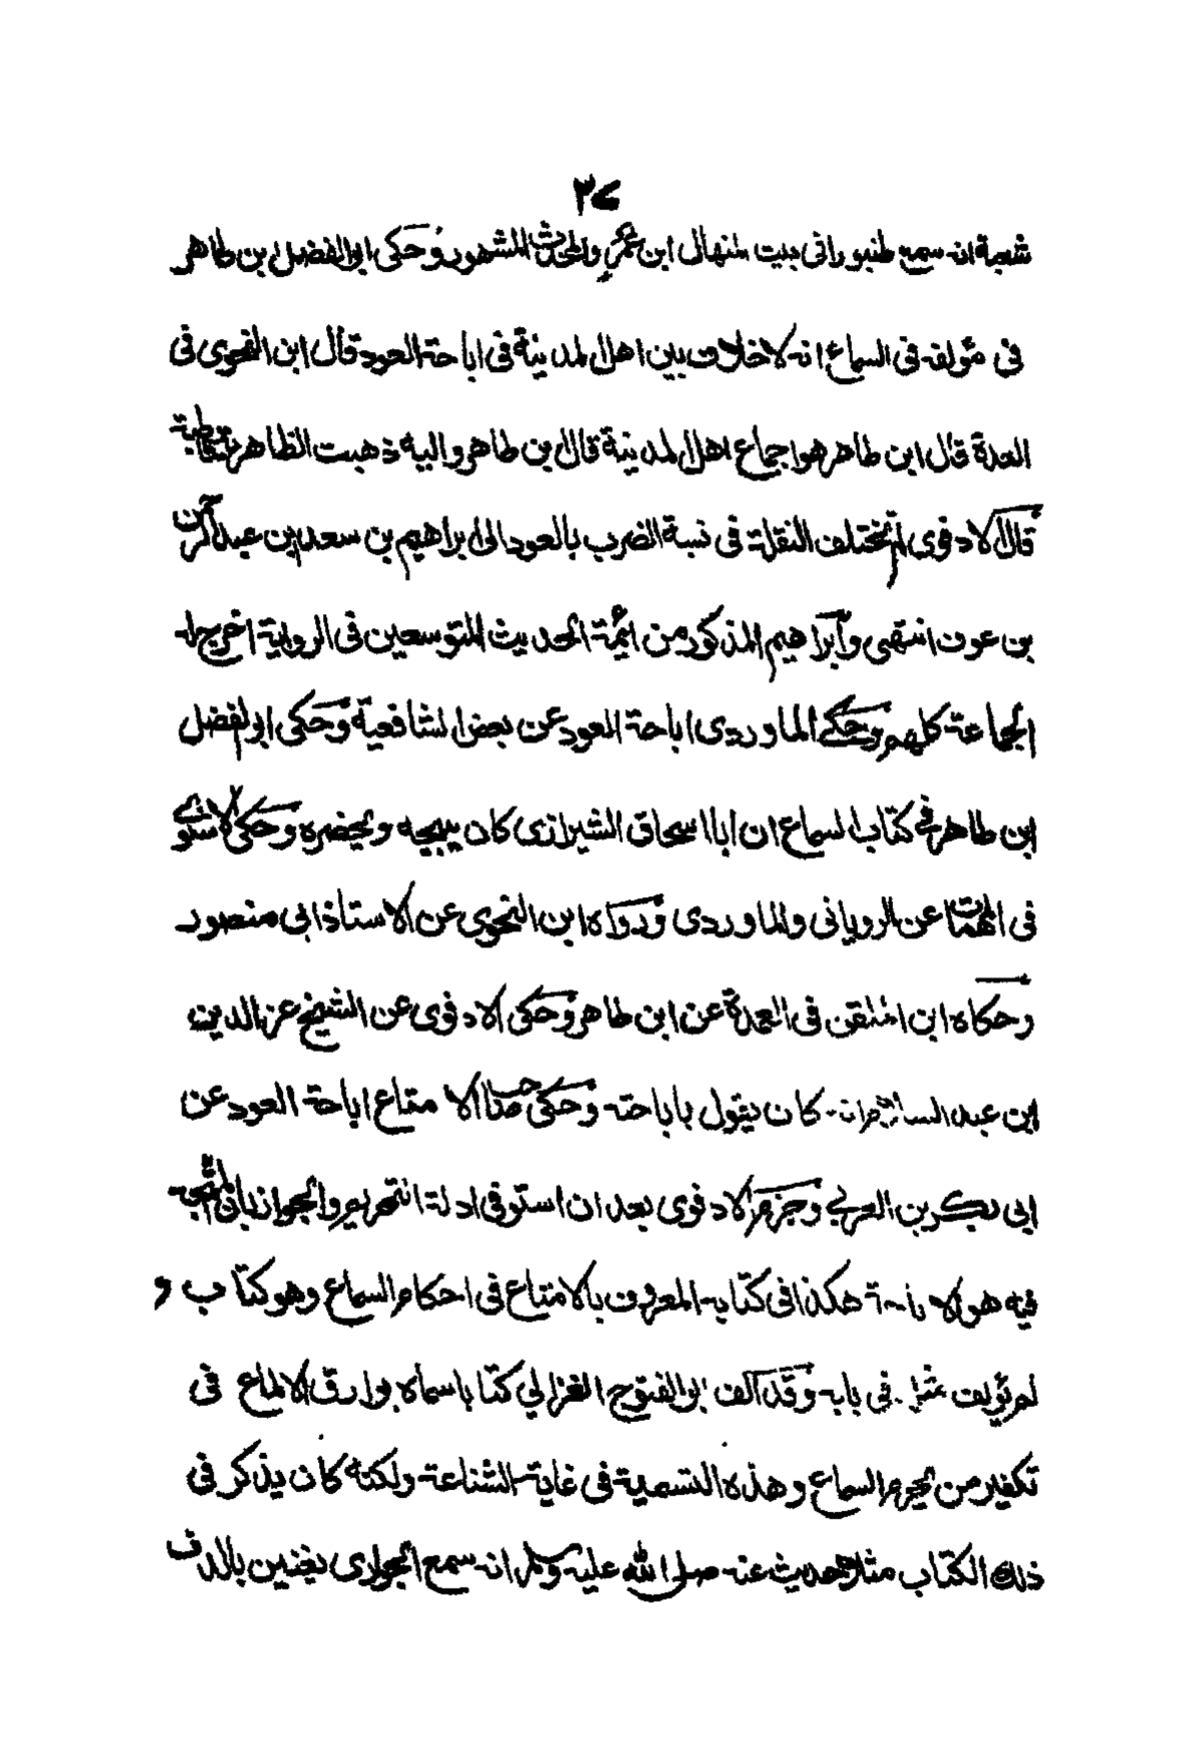 ٣٧
شعبة انه سمع طنبورا في بيت المنهال ابن عمرو المحدث المشهور وحكى ابو الفضل ابن طاهر
في مؤلفه في السماع انه لا خلاف بين اهل المدينة في اباحة العود قال ابن النحوى في
العمدة قال ابن طاهر هو اجماع اهل المدينة قال بن طاهر واليه ذهبت الظاهرية قاطبة
قال الادفوى لم تختلف النقلة في نسبة الضرب بالعود الى ابراهيم بن سعد بن عبد الرحمن
بن عوف انتهى وابراهيم المذكور من ائمة الحديث المتوسعين في الرواية اخرج له
الجماعة كلهم وحكى الماوردى اباحة العود عن بعض الشافعية وحكى ابو الفضل
ابن طاهر في كتاب السماع ان ابا اسحاق الشيرازى كان يبيحه ويحضره وحكى الاسنوى
في المهمات عن الرويانى والماوردى ورواه ابن النحوى عن الاستاذ ابى منصور
وحكاه ابن الملقن في العمدة عن ابن طاهر وحكى الادفوى عن الشيخ عز الدين
ابن عبد السلام انه كان يقول باباحته وحكى صاحب الامتاع اباحة العود عن
ابي بكر بن العربي وجزم الادفوى بعد ان استوفى ادلة التحريم والجواز بان المتجه
فيه هو الاباحة هكذا في كتابه المعروف بالامتاع في احكام السماع وهو كتاب و
لم يؤلف مثله في بابه وقد الف ابو الفتوح الغزالي كتابا سماه بوارق الالماع في
تكفير من يحرم السماع وهذه التسمية في غاية الشناعة ولكنه كان يذكر في
ذلك الكتاب مثلا حديث عنه صلى الله عليه وسلم انه سمع الجوارى يغنين بالدف